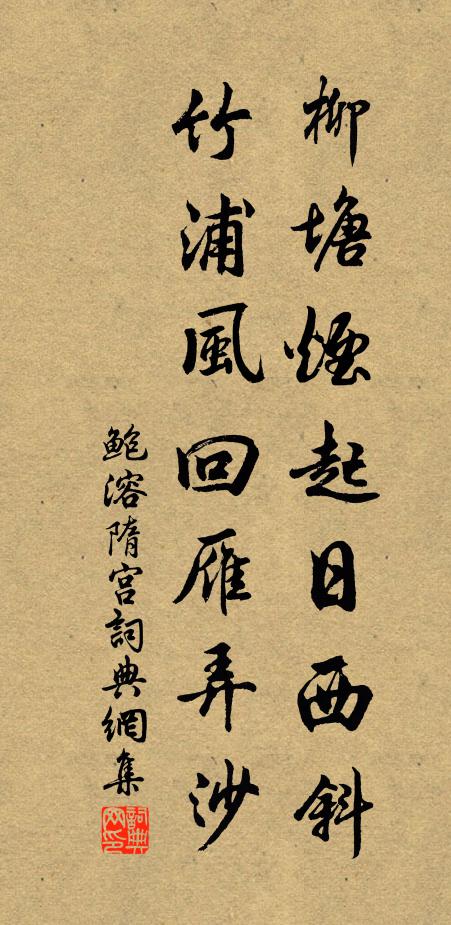 柳塘煙起日西斜
竹浦風回雁弄沙
鮑溶隋宮詞典網集
詞典网印